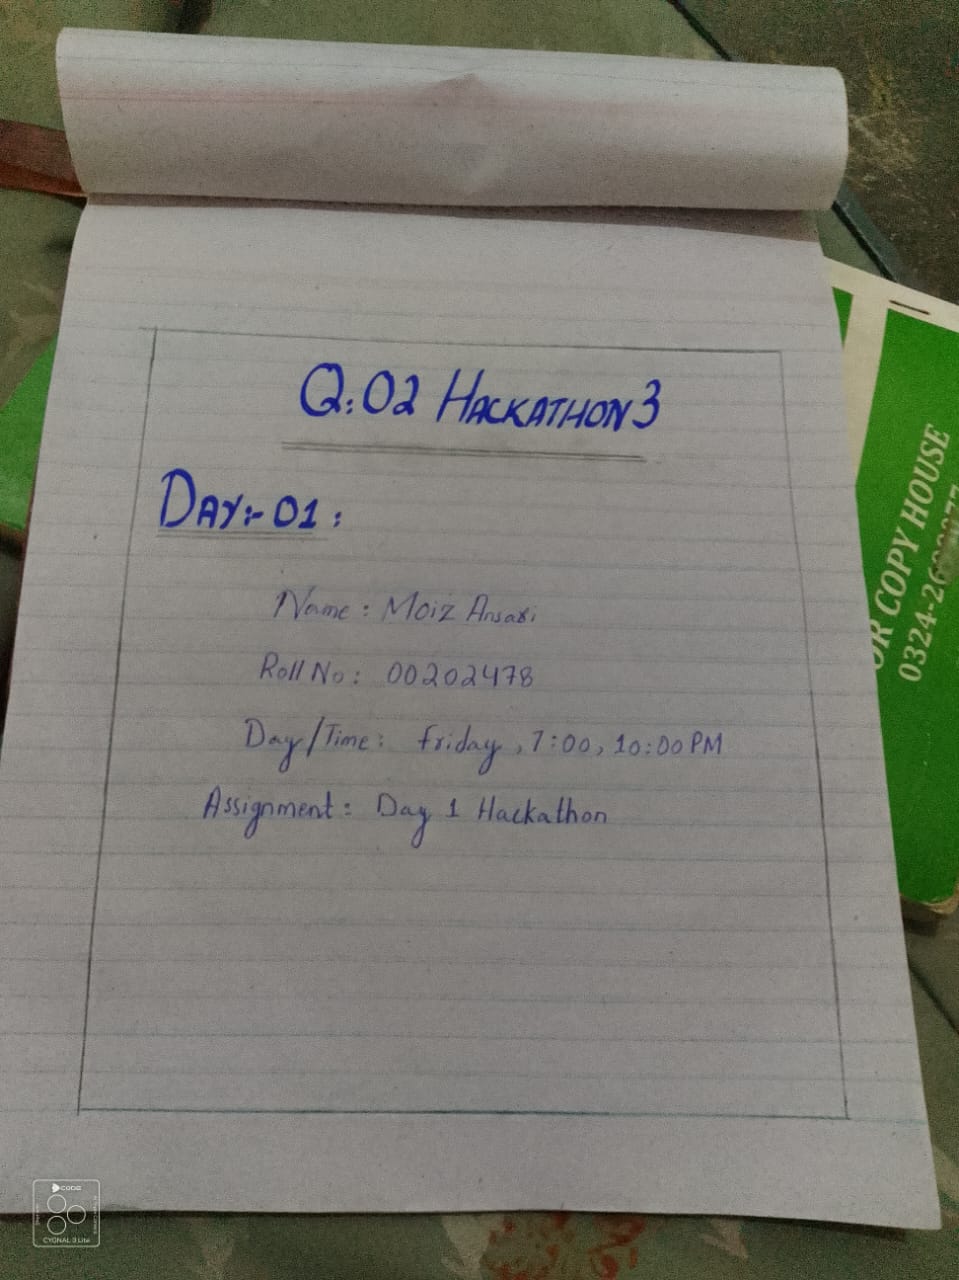 Q:02 HACKATHON 3
DAY:- 01 :
Name : Moiz Ansari
Roll No : 00202478
Day/Time : Friday , 7:00, 10:00 PM
Assignment : Day 1 Hackathon
COPY HOUSE
0324-26
CODE
CYGNAL 3 Lite